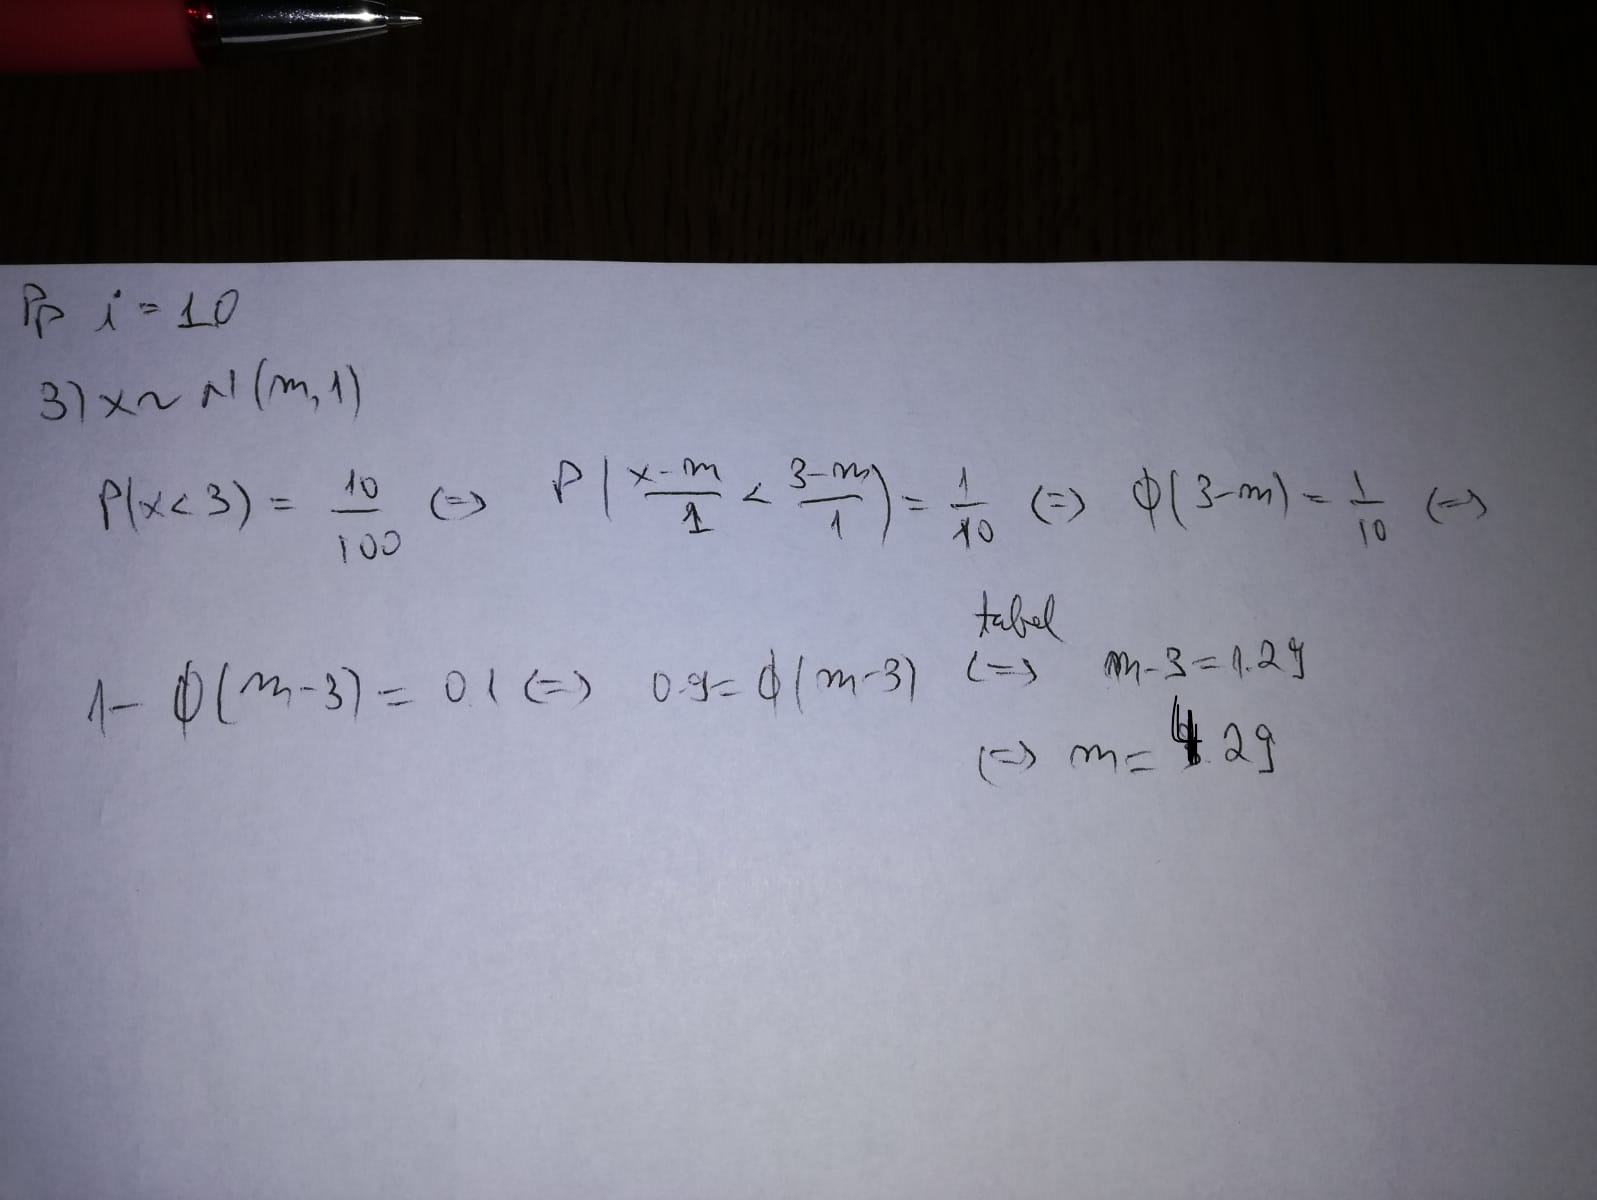 Pp i = 10
3) X ~ N (m, 1)
P(X < 3) = 10/100 (=) P( X-m/1 < 3-m/1 ) = 1/10 (=) ϕ(3-m) = 1/10 (=)
tabel
1 - ϕ(m-3) = 0.1 (=) 0.9 = ϕ(m-3) (=) m-3 = 1.29
(=) m = 4.29